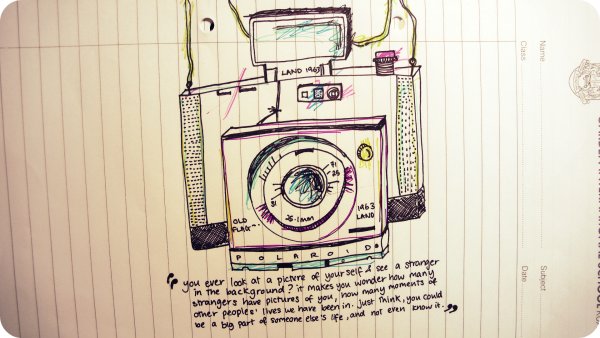 LAND 1963
71
25
31
25.1mm
OLD
FLAG--·
1963
LAND
POLAROID
"you ever look at a picture of yourself & see a stranger
in the background? it makes you wonder how many
strangers have pictures of you, how many moments of
other peoples' lives we have been in. just think, you could
be a big part of someone else's life, and not even know it."
Name
Class
Subject
Date